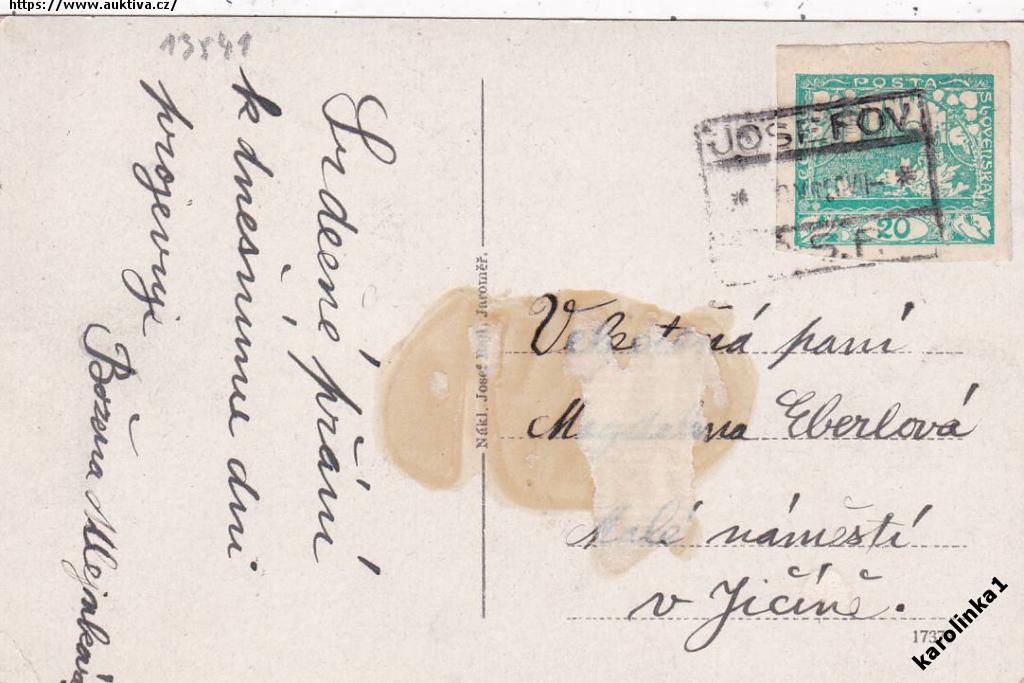 https://www.auktiva.cz/
13541
Srdečné přání
k dnešnímu dni
projevuje
Božena Mlejnková
Nákl. Josef Jaroměř.
POSTA
SLOVENSKA
20
JOSEFOV
* *
Č.S.P.
Velectěná paní
Magdalena Eberlová
Malé náměstí
v Jičíně.
karolinka1